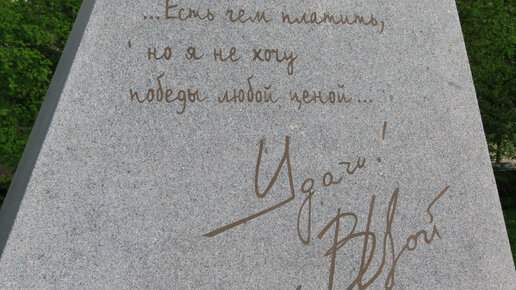 ...Есть чем платить,
но я не хочу
победы любой ценой...
Удачи!